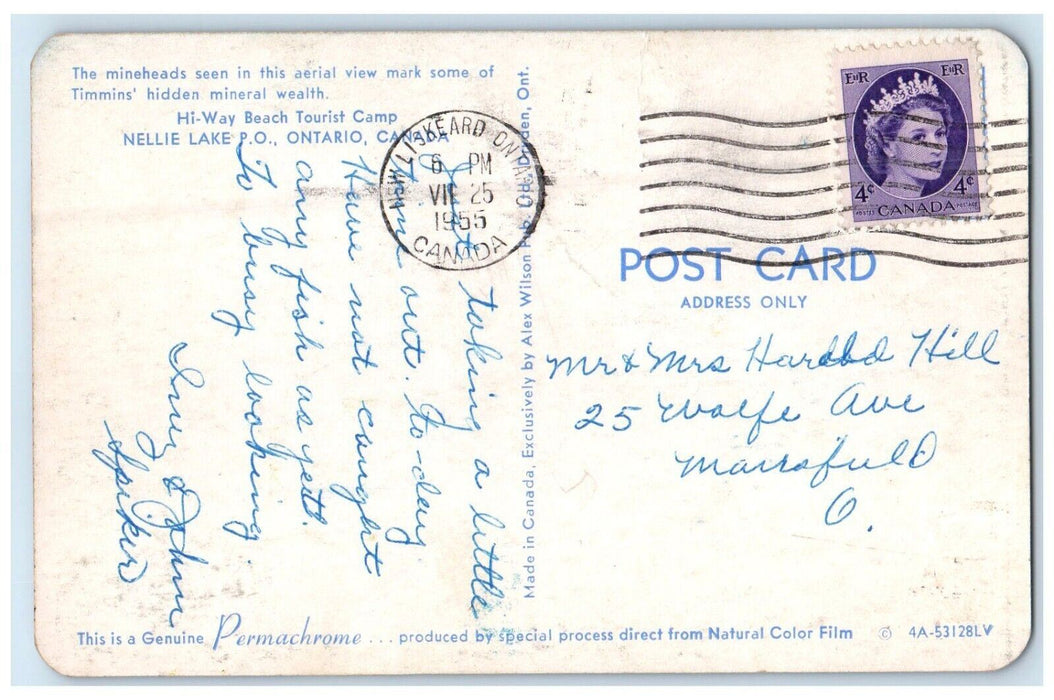 The mineheads seen in this aerial view mark some of
Timmins' hidden mineral wealth.
Hi-Way Beach Tourist Camp
NELLIE LAKE P.O., ONTARIO, CANADA
taking a little
time out. To-day
Have not caught
any fish as yet.
To busy looking
Inez & John
Spiker
Made in Canada, Exclusively by Alex Wilson Pub. Ltd. Dryden, Ont.
NEW LISKEARD ONTARIO
6 PM
VII 25
1955
CANADA
EIIR EIIR
4¢ 4¢
POSTES CANADA POSTAGE
POST CARD
ADDRESS ONLY
Mr & Mrs Harold Hill
25 Wolfe Ave
Mansfield
O.
This is a Genuine Permachrome ... produced by special process direct from Natural Color Film © 4A-53128LV